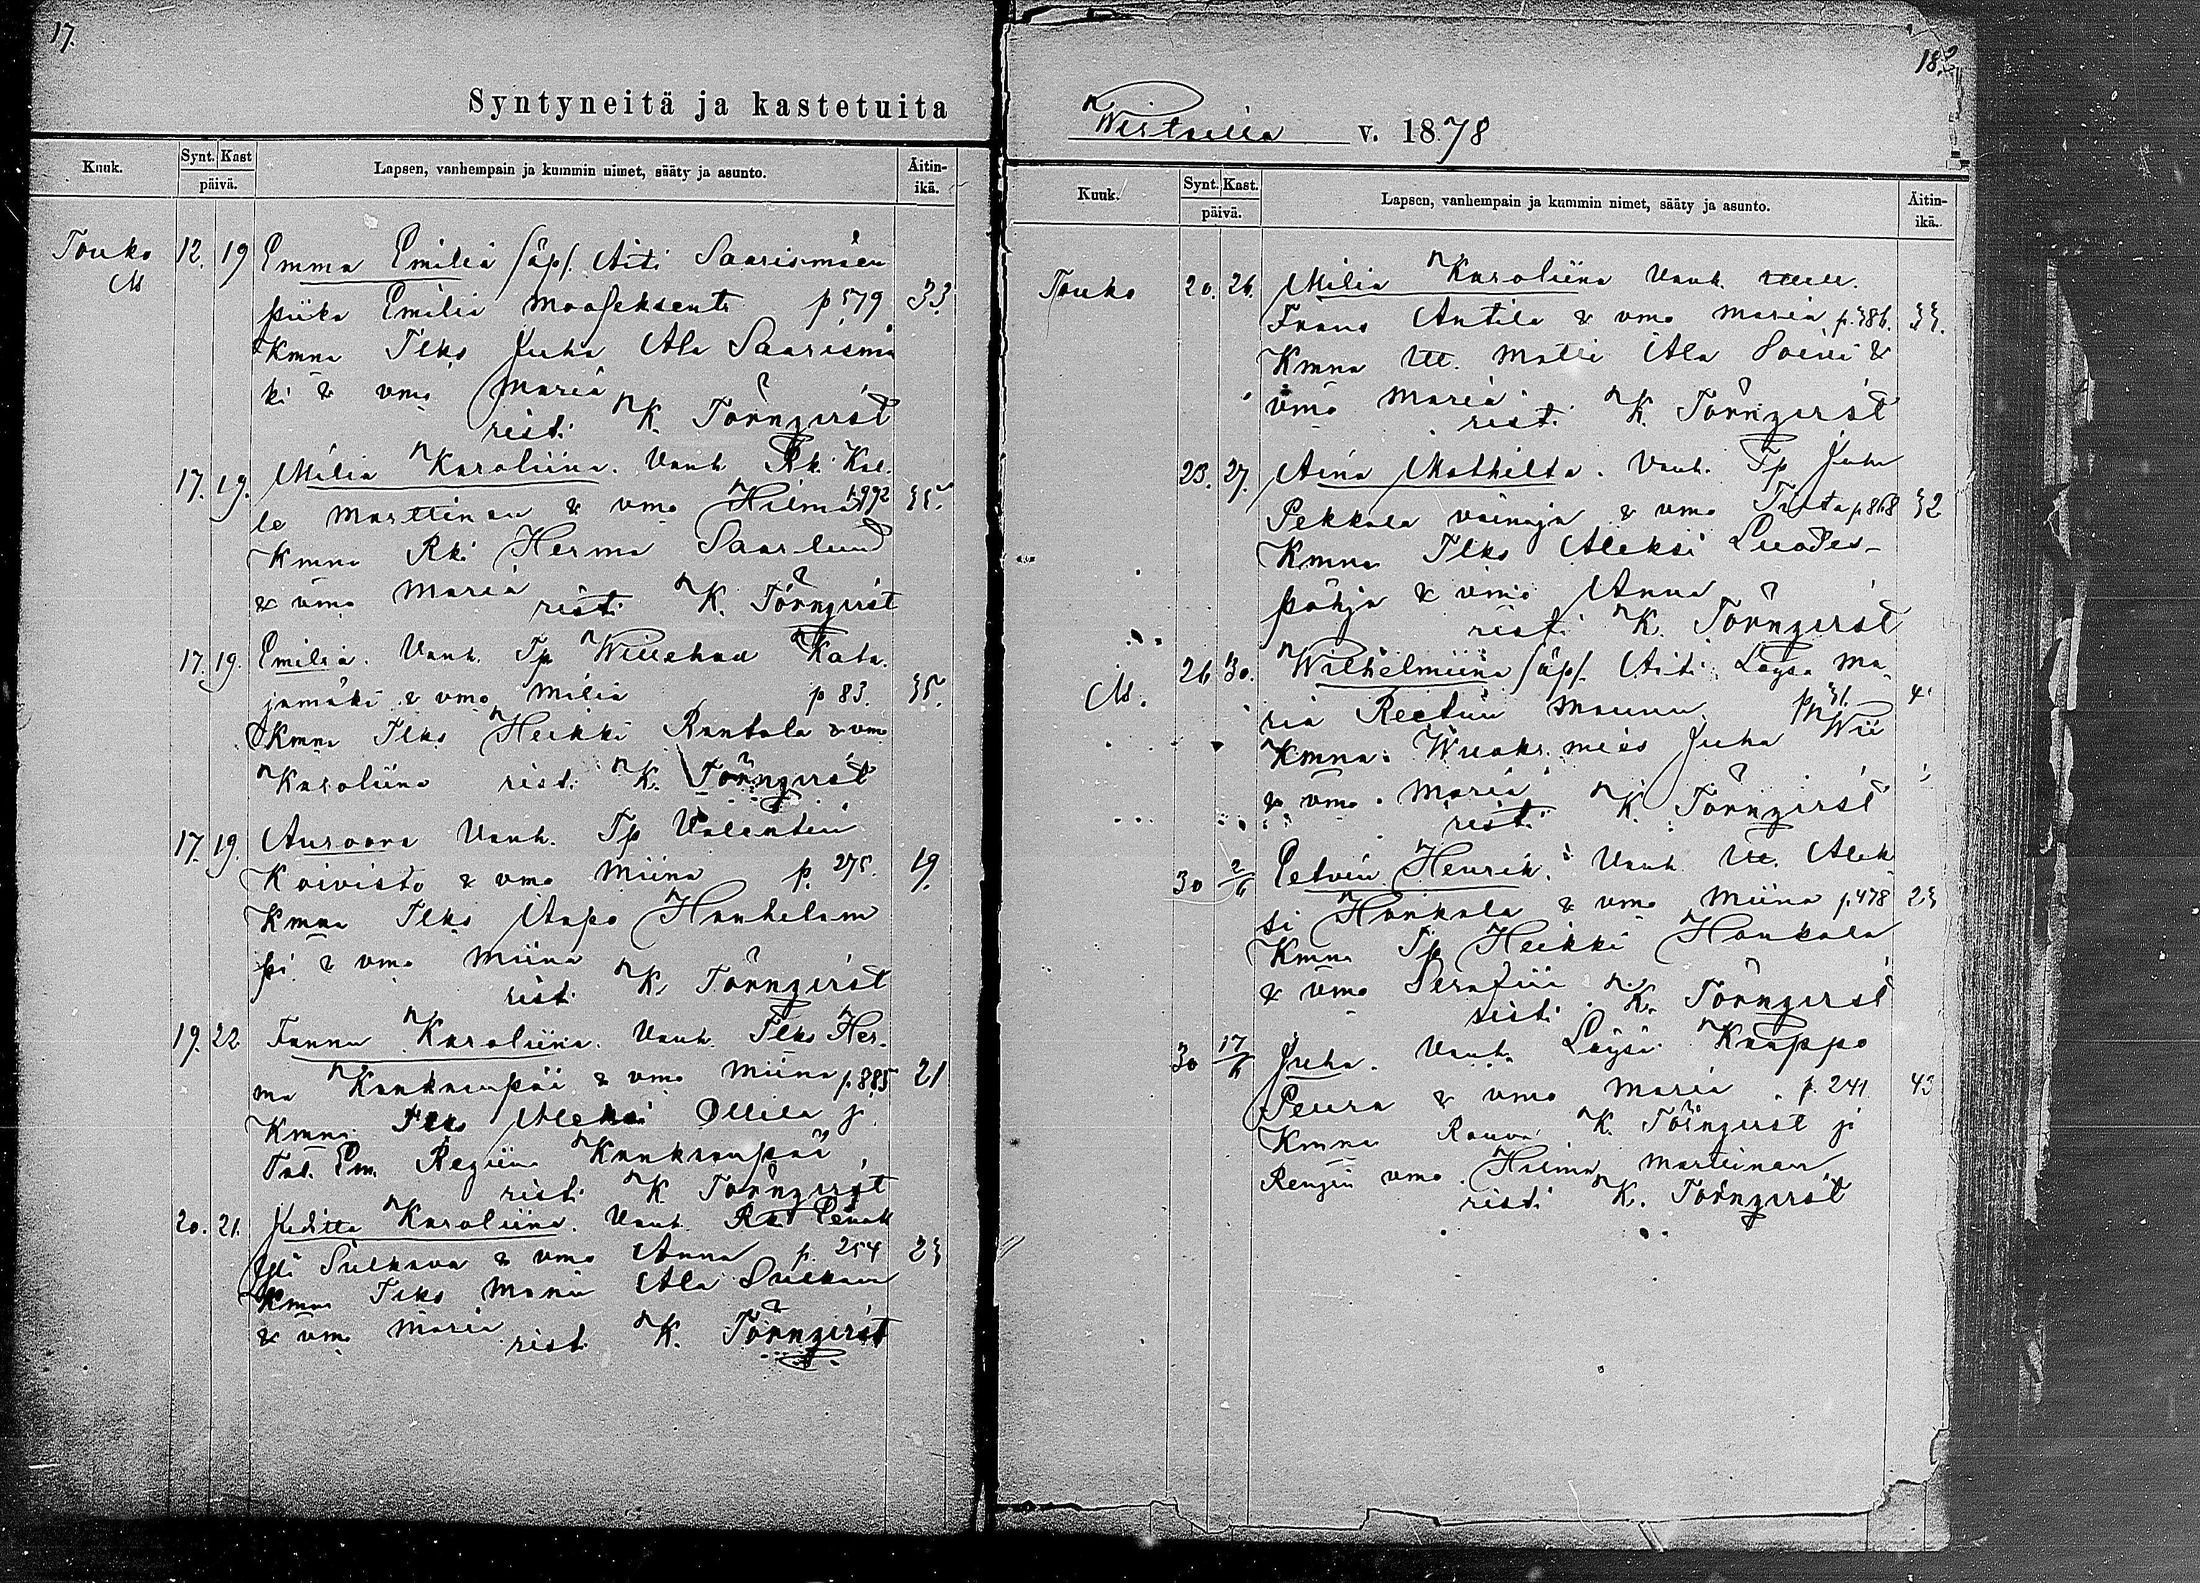 17.
Syntyneitä ja kastetuita
Kuuk. Synt. Kast päivä. Lapsen, vanhempain ja kummin nimet, sääty ja asunto. Äitin-ikä.
Touko 12. 19 Emma Emilia /äp/. Äiti Saarismäen
piika Emilia p 579 33
Kmna Tlks Juha Ala Saarismä
ki & vmo Maria
risti K. Törnqvist
17. 19. Milia Karoliina. Vanh. Rk. Kal
le Marttinen & vmo Hilma p 992 35.
Kmna Rk. Herma Saarlund
& vmo Maria
risti K. Törnqvist
17. 19. Emilia. Vanh. Tp Willehad Kata
jamäki & vmo Milia p 83. 35.
Kmna Tlks Heikki Rantala & vmo
Karoliina risti K. Törnqvist
17. 19. Auroora Vanh. Tp Valentin
Koivisto & vmo Miina p. 275. 19.
Kmna Tlks Aapo Hanhelam
pi & vmo Miina
risti K. Törnqvist
19. 22 Fanni Karoliina. Vanh. Tlks Her
ma Kankaanpää & vmo Miina p. 885 21
Kmna Tlks Aleksi Ollila j.
Tal. Em. Regiina Kankaanpää
risti K. Törnqvist
20. 21. Juditta Karoliina. Vanh. Rk.
Yli Sulkava & vmo Anna p. 254 23
Kmna Tlks Manu Ala Sulkava
& vmo Maria
risti K. Törnqvist
18.
v. 1878
Kuuk. Synt. Kast. päivä. Lapsen, vanhempain ja kummin nimet, sääty ja asunto. Äitin-ikä.
Touko 20. 26. Milia Karoliina Vanh.
Frans Antila & vmo Maria p. 386. 33.
Kmna Matti Ala Soini &
vmo Maria
risti K. Törnqvist
23. 27. Aina Mathilta. Vanh. Tp Juha
Pekkala vainaja & vmo p 868 32
Kmna Tlks Aleksi Luodes-
pohja & vmo Anna
risti K. Törnqvist
26 30. Wilhelmiina /äp/. Äiti Loysi Ma
ria
Kmna: mies Juha Wii
& vmo Maria
risti K. Törnqvist
30 2/6 Eetvin Henrik. Vanh. Alek
si Honkala & vmo Miina p. 478 23
Kmna Tp Heikki Honkala
& vmo Serafia
risti K. Törnqvist
30 17/6 Juha. Vanh. Loysi Kaappo
Peura & vmo Maria p. 241. 43
Kmna Rouva K. Törnqvist ja
Rengin vmo Hilma Marttinen
risti K. Törnqvist